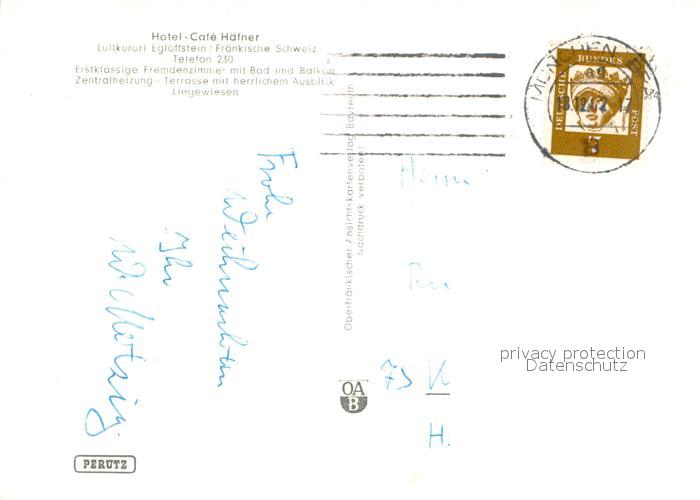 Hotel-Café Häfner
Luftkurort Egloffstein / Fränkische Schweiz
Telefon 230
Erstklassige Fremdenzimmer mit Bad und Balkon
Zentralheizung - Terrasse mit herrlichem Ausblick
Liegewiesen
Frohe
Weihnachten
Ihr
Oberfränkischer Ansichtskartenverlag Bayreuth
Nachdruck verboten!
MÜNCHEN
DEUTSCHE
BUNDES
POST
Herrn
H.
privacy protection
Datenschutz
OA
B
PERUTZ